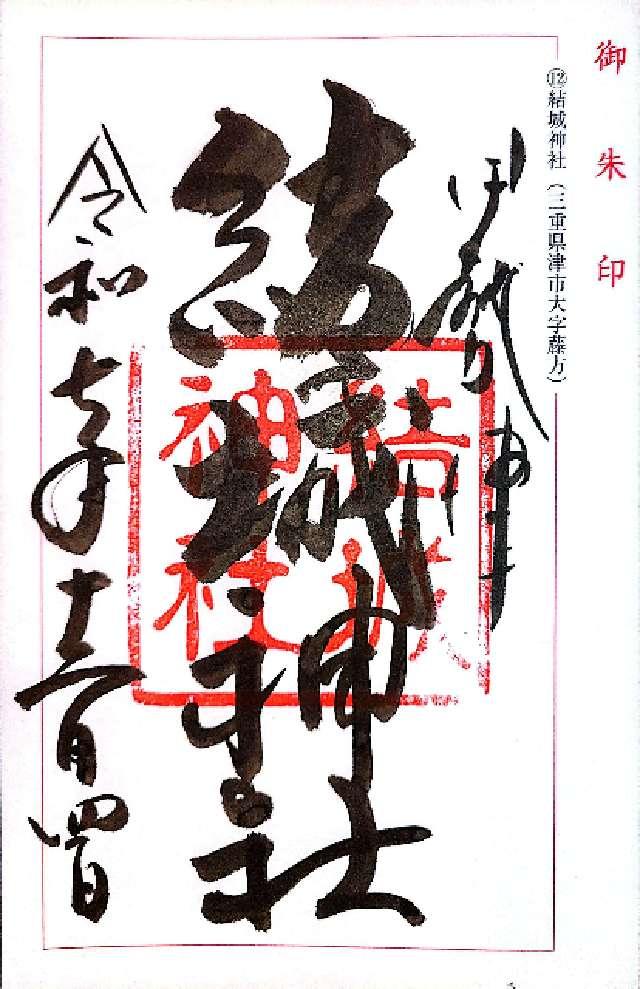 御朱印
⑫結城神社(三重県津市大字藤方)
伊勢津
結城神社
結城神社
令和七年十一月四日